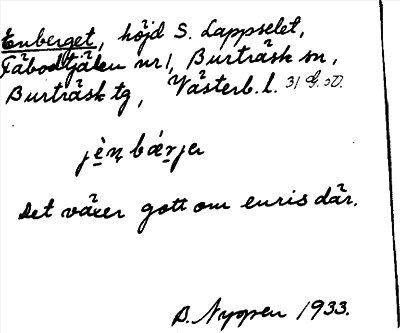 Enberget, höjd S. Lappselet,
Fäbodtjälen nr 1, Burträsk sn,
Burträsk tg, Västerb. l.
jèṇ bǽrjer
Det växer gott om enris där.
B. Nygren 1933.